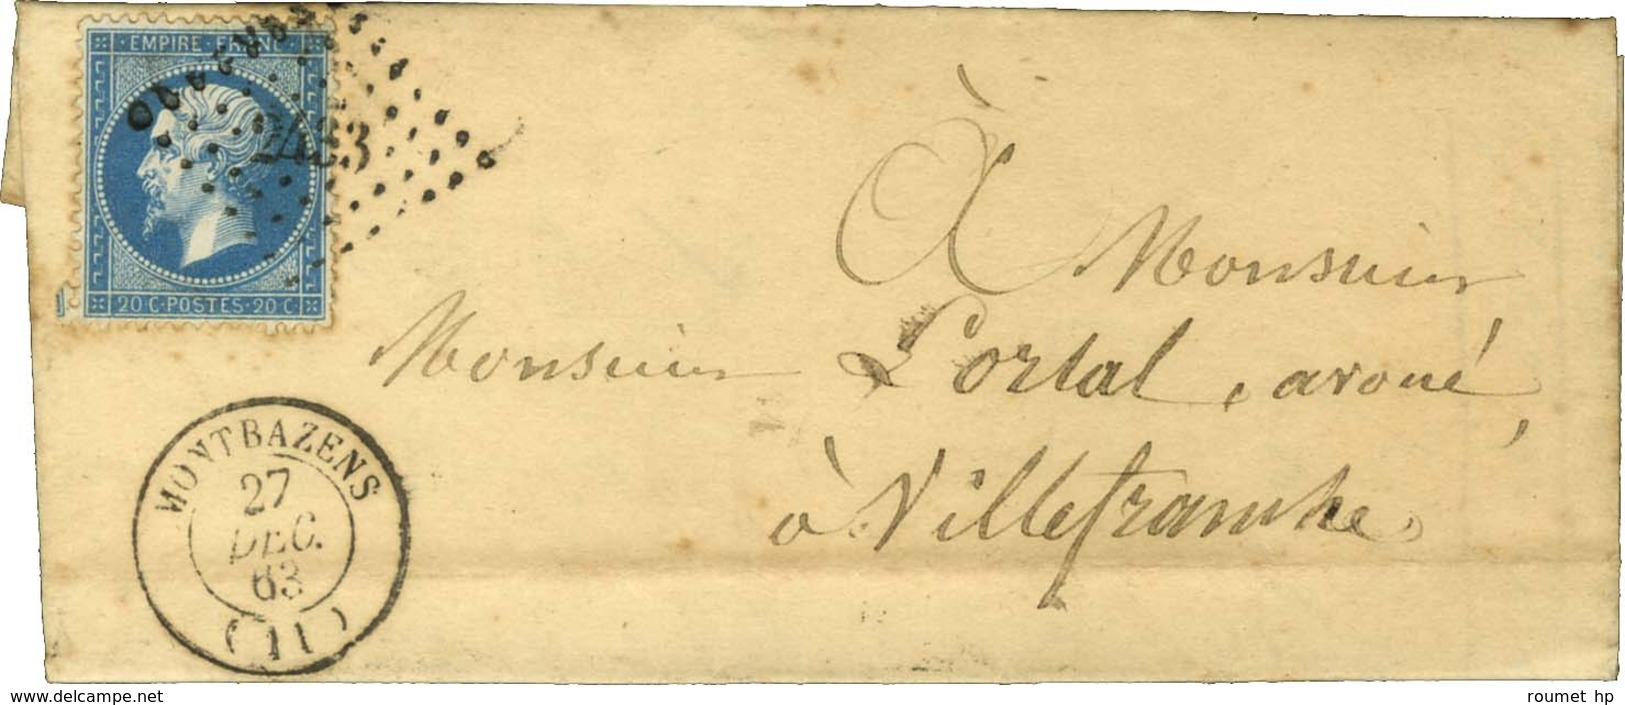 EMPIRE FRANC
2433
20 C · POSTES · 20 C
À Monsieur
Monsieur Portal, avoué,
à Villefranche
MONTBAZENS
27
DEC.
63
(11)
www.delcampe.net
roumet hp